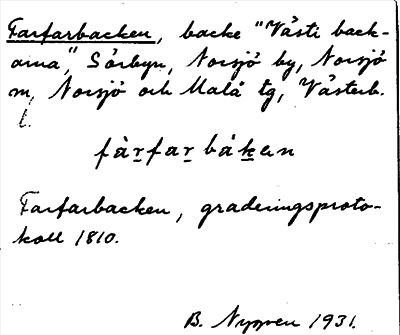 Farfarbacken, backe "Västi back-
arna", Sörbyn, Norsjö by, Norsjö
sn, Norsjö och Malå tg, Västerb.
l.
fàr̲far̲ bák̲en
Farfarbacken, graderingsproto-
koll 1810.
B. Nygren 1931.